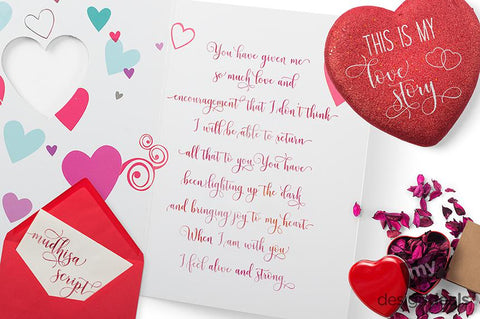 You have given me
so much love and
encouragement that I don't think
I will be able to return
all that to you. You have
been lighting up the dark
and bringing joy to my heart.
When I am with you
I feel alive and strong.
THIS IS MY
love
story
mudhisa
script
my
design deals